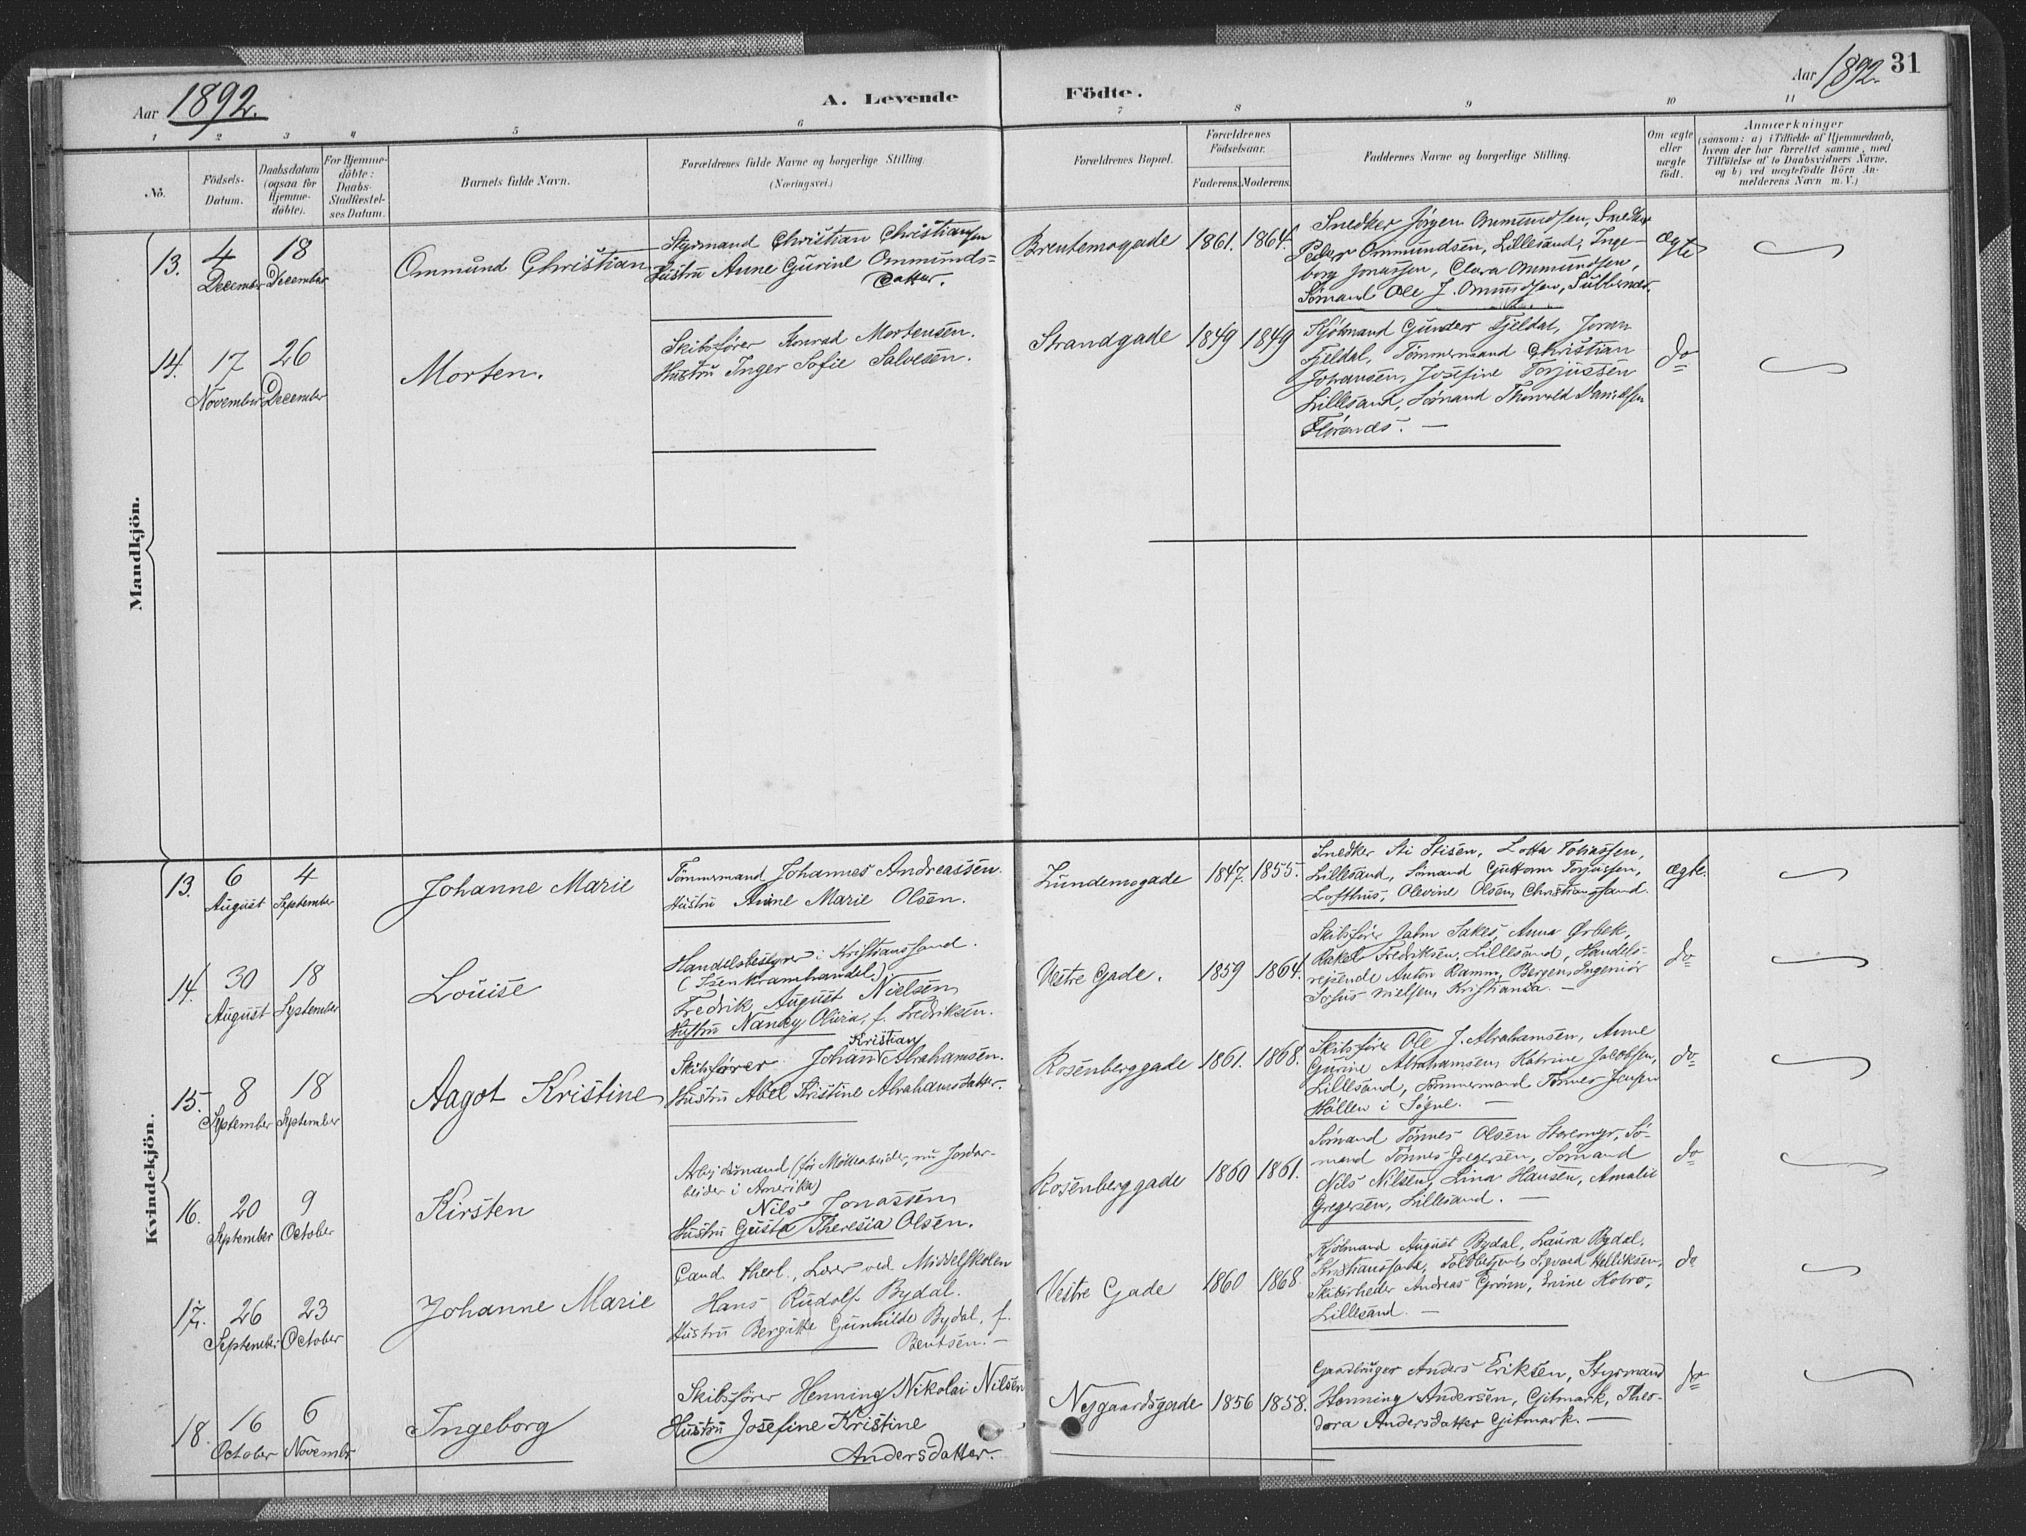 Aar 1892. A. Levende Födte. Aar 1892. 31
1 2 3 4 5 6 7 8 9 10 11
No. Födsels-Datum. Daabsdatum (ogsaa for Hjemme-döbte). For Hjemme-döbte: Daabs-Stadfæstel-ses Datum. Barnets fulde Navn. Forældrenes fulde Navne og borgerlige Stilling. (Næringsvei.) Forældrenes Bopæl. Forældrenes Födselsaar. Faderens. Moderens. Faddernes Navne og borgerlige Stilling. Om ægte eller uægte födt. Anmærkninger (saasom: a) i Tilfælde af Hjemmedaab, hvem der har forrettet samme, med Tilföielse af to Daabsvidners Navne, og b) ved uægtefödte Börn An-melderens Navn m. V.)
Mandkjön.
13. 4 December 18 December
Ommund Christian
Styrmand Christian Christiansen
Hustru Anne Gurine Ommunds-
datter.
Brentemogade 1861. 1864.
Snedker Jörgen Ommundsen, Snedker
Peder Ommundsen, Lillesand, Inge-
borg Jonassen, Clara Ommundsen,
Sömand Ole J. Ommundsen,
ægte
14. 17 November 26 December
Morten.
Skibsfører Konrad Mortensen.
Hustru Inger Sofie Salvesen.
Strandgade 1849 1849
Kjöbmand Gunder Fjeldal, Joran
Fjeldal, Tömmermand Christian
Johansen, Josefine Torjussen
Lillesand, Sömand Thorvald Danielsen
do
Kvindekjön.
13. 6 August 4 September
Johanne Marie
Tömmermand Johannes Andreassen
Hustru Anne Marie Olsen.
Lundemogade 1847. 1855.
Snedker Ai Stisen, Lotta Tobiassen,
Lillesand, Sömand Guttorm Torjussen,
Lofthus, Olevine Olsen, Christianssand.
ægte.
14. 30 August 18 September
Louise
Handelsbestyrer i Kristianssand.
(Isenkramhandel)
Fredrik August Nielsen
Hustru Nancy Olivia, f. Fredriksen.
Vestre Gade. 1859 1864.
Skibsfører Jahn Sakes, Anna Ørbek,
Rakel Fredriksen, Lillesand, Handels-
rejsende Anton Ramm, Bergen, Ingeniör
Sofus Nielsen, Kristiania. —
do
15. 8 September 18 September
Aagot Kristine
Kristian
Skibsfører Johan Abrahamsen.
Hustru Abel Kristine Abrahamsdatter.
Rosenberggade 1861. 1868.
Skibsfører Ole J. Abrahamsen, Anne
Gurine Abrahamsen, Katrine Jacobsen,
Lillesand, Tömmermand Tönnes Jensen
Höllen i Søgne. —
do
16. 20 September 9 October
Kirsten
Arbejdsmand (för Möllearbeider, nu Jordar-
beider i Amerika)
Nils Jonassen
Hustru Gusta Theresia Olsen.
Rosenberggade 1860 1861.
Sömand Tönnes Olsen, Sö-
mand Tönnes Gregersen, Sömand
Nils Nilsen, Lina Hansen, Amalie
Gregersen, Lillesand. —
do
17. 26 September 23 October
Johanne Marie
Cand. theol., Lærer ved Middelskolen
Hans Rudolf Bydal.
Hustru Bergitte Gunhilde Bydal, f.
Bentsen. —
Vestre Gade 1860 1868
Kjöbmand August Bydal, Laura Bydal,
Kristianssand, Toldbetjent Sigvard Kittilsen,
Skibsrheder Andreas Grönn, Enine Holvo,
Lillesand. —
do
18. 16 October 6 November
Ingeborg
Skibsfører Henning Nikolai Nilsen
Hustru Josefine Kristine
Andersdatter.
Nygaardsgade 1856 1858.
Gaardbruger Anders Eriksen, Styrmand
Henning Andersen, Gitmark, Theo-
dora Andersdatter Gitmark. —
do